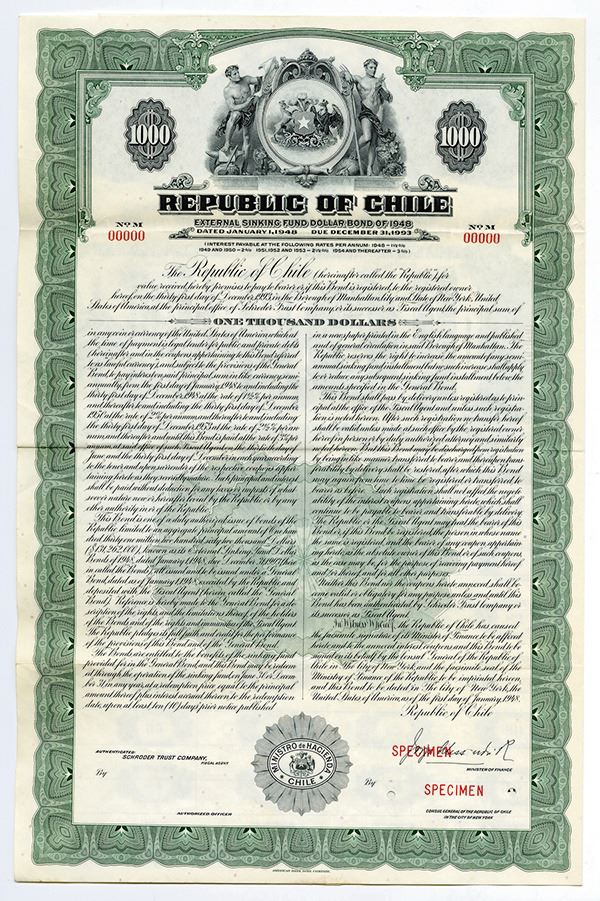 1000
1000
REPUBLIC OF CHILE
EXTERNAL SINKING FUND DOLLAR BOND OF 1948
DATED JANUARY 1, 1948 DUE DECEMBER 31, 1993
No M
00000
No M
00000
(INTEREST PAYABLE AT THE FOLLOWING RATES PER ANNUM: 1948 – 1½%
1949 AND 1950 – 2% 1951, 1952 AND 1953 – 2½% 1954 AND THEREAFTER – 3%)
The Republic of Chile (hereinafter called the Republic), for
value received, hereby promises to pay to bearer, or if this Bond is registered, to the registered owner
hereof, on the thirty first day of December, 1993, in the Borough of Manhattan, City and State of New York, United
States of America, at the principal office of Schroder Trust Company, or its successor as Fiscal Agent, the principal sum of
ONE THOUSAND DOLLARS
in any coin or currency of the United States of America which at
the time of payment is legal tender for public and private debts
(hereinafter and in the coupons appertaining to this Bond referred
to as lawful currency), and, subject to the provisions of the General
Bond, to pay interest on said principal sum in like currency, semi-
annually, from the first day of January, 1948 to and including the
thirty first day of December, 1948 at the rate of 1½% per annum,
and thereafter to and including the thirty first day of December,
1950 at the rate of 2% per annum and thereafter to and including
the thirty first day of December, 1953 at the rate of 2½% per an-
num, and thereafter and until this Bond is paid at the rate of 3% per
annum, at said office of such Fiscal Agent, on the thirtieth day of
June and the thirty first day of December in each year, according
to the tenor and upon surrender of the respective coupons apper-
taining hereto as they severally mature. Such principal and interest
shall be paid without deduction for any taxes or imposts of what-
soever nature now or hereafter levied by the Republic or by any
other authority in or of the Republic.
This Bond is one of a duly authorized issue of bonds of the
Republic limited to an aggregate principal amount of One hun-
dred thirty one million two hundred sixty two thousand Dollars
known as its External Sinking Fund Dollar
Bonds of 1948, dated January 1, 1948, due December 31, 1993 (here-
in called the Bonds), all issued and to be issued under a General
Bond, dated as of January 1, 1948, executed by the Republic and
deposited with the Fiscal Agent (herein called the General
Bond). Reference is hereby made to the General Bond for a de-
scription of the rights, and the limitations thereof, of the holders
of the Bonds, and of the rights and immunities of the Fiscal Agent.
The Republic pledges its full faith and credit for the performance
of the provisions of this Bond and of the General Bond.
The Bonds are entitled to the benefits of the sinking fund
provided for in the General Bond, and this Bond may be redeem-
ed through the operation of the sinking fund, on June 30 or Decem-
ber 31, in any year, at a redemption price equal to the principal
amount thereof plus interest accrued thereon to the redemption
date, upon at least ten (10) days prior notice published
in a newspaper printed in the English language and published
and of general circulation in said Borough of Manhattan. The
Republic reserves the right to increase the amount of any semi-
annual sinking fund installment but no such increase shall apply
to or reduce any subsequent sinking fund installment below the
amounts specified in the General Bond.
This Bond shall pass by delivery unless registered as to prin-
cipal at the office of the Fiscal Agent and unless such registra-
tion is noted hereon. After such registration no transfer hereof
shall be valid unless made at such office by the registered own-
er hereof in person or by duly authorized attorney and similarly
noted hereon. But this Bond may be discharged from registration
by being in like manner transferred to bearer, and thereafter trans-
ferability by delivery shall be restored, after which this Bond
may again from time to time be registered or transferred to
bearer as before. Such registration shall not affect the negotia-
bility of the interest coupons appertaining hereto, which shall
continue to be payable to bearer and transferable by delivery.
The Republic or the Fiscal Agent may treat the bearer of this
Bond or, if this Bond be registered, the person in whose name
the same is registered, and the bearer of any coupon appertain-
ing hereto, as the absolute owner of this Bond or of such coupon,
as the case may be, for the purpose of receiving payment hereof
and, or thereof, and for all other purposes.
Neither this Bond nor the coupons hereto annexed shall be-
come valid or obligatory for any purpose unless and until this
Bond has been authenticated by Schroder Trust Company or
its successor as Fiscal Agent.
In Witness Whereof, the Republic of Chile has caused
the facsimile signature of its Minister of Finance to be affixed
hereto and to the annexed interest coupons and this Bond to be
signed on its behalf by the Consul General of the Republic of
Chile in The City of New York, and the facsimile seal of the
Ministry of Finance of the Republic to be imprinted hereon,
and this Bond to be dated in The City of New York, the
United States of America, as of the first day of January, 1948.
Republic of Chile
AUTHENTICATED:
SCHRODER TRUST COMPANY,
FISCAL AGENT
By
AUTHORIZED OFFICER
MINISTRO de HACIENDA
CHILE
SPECIMEN
MINISTER OF FINANCE
By
SPECIMEN
CONSUL GENERAL OF THE REPUBLIC OF CHILE
IN THE CITY OF NEW YORK
AMERICAN BANK NOTE COMPANY.